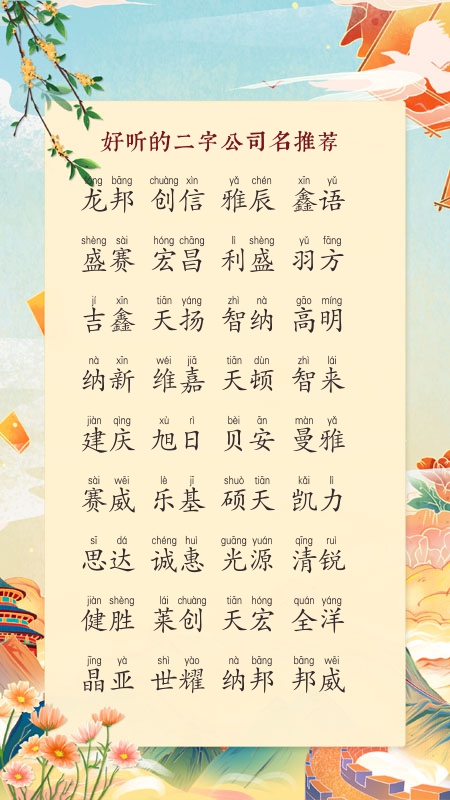 好听的二字公司名推荐
lóng bāng chuàng xìn yǎ chén xīn yǔ
龙邦 创信 雅辰 鑫语
shèng sài hóng chāng lì shèng yǔ fāng
盛赛 宏昌 利盛 羽方
jí xīn tiān yáng zhì nà gāo míng
吉鑫 天扬 智纳 高明
nà xīn wéi jiā tiān dùn zhì lái
纳新 维嘉 天顿 智来
jiàn qìng xù rì bèi ān màn yǎ
建庆 旭日 贝安 曼雅
sài wēi lè jī shuò tiān kǎi lì
赛威 乐基 硕天 凯力
sī dá chéng huì guāng yuán qīng ruì
思达 诚惠 光源 清锐
jiàn shèng lái chuàng tiān hóng quán yáng
健胜 莱创 天宏 全洋
jīng yà shì yào nà bāng bāng wēi
晶亚 世耀 纳邦 邦威